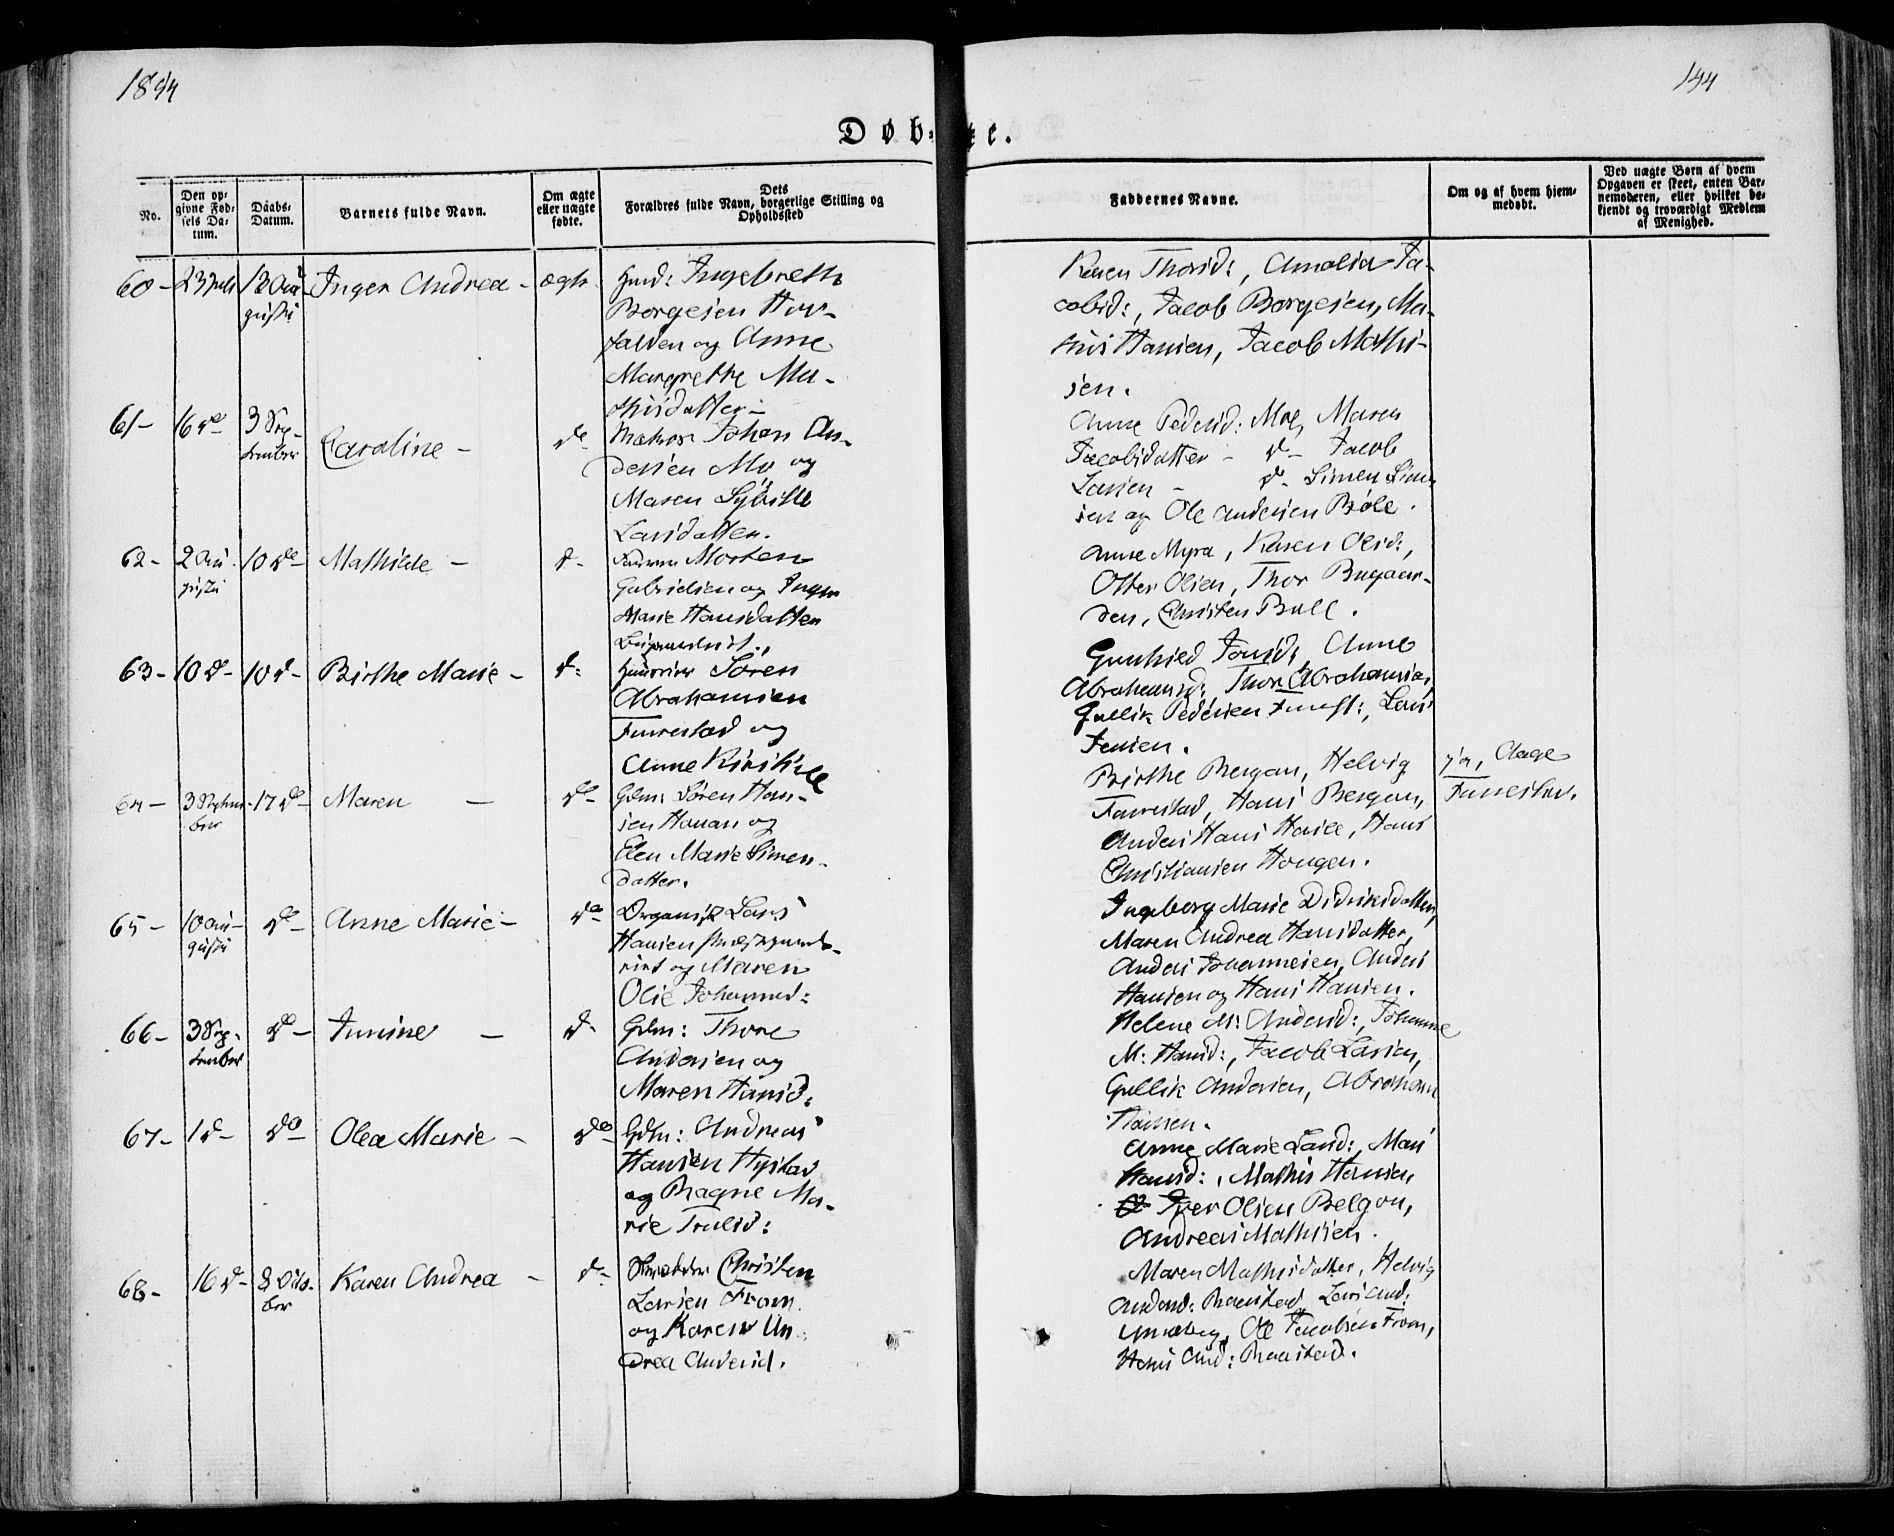 1844
144
Døb-te.
No.
Den op-
givne Fød-
sels Da-
tum.
Daabs-
Datum.
Barnets fulde Navn.
Om ægte
eller uægte
fødte.
Dets
Forældres fulde Navn, borgerlige Stilling og
Opholdssted
Faddernes Navne.
Om og af hvem hjem-
medøbt.
Ved uægte Børn af hvem
Opgaven er skeet, enten Bar-
nemoderen, eller hvilket be-
kjendt og troværdigt Medlem
af Menighed.
60 - 23 Juli
Au-
gusti
Inger Andrea -
ægte
Ingebreth
Borgesen
og Anne
Margrethe Ma-
thisdatter -
Karen Thorsd:, Amalia Ja-
cobsd:, Jacob Borgesen, Ma-
this Hansen, Jacob Mathi-
sen.
61 - 16 de
3 Sep-
tember
Caroline -
de
Johan An-
dersen Mo og
Maren Sybille
Larsdatter.
Anne Pedersd: Moe, Maren
Jacobsdatter - d - Jacob
Larsen - de - Simen Simen
sen og Ole Andersen Bøle.
62 - 2 Au-
gusti
10 de
Mathilde -
d -
Morten
Gabrielsen og Inger
Marie Hansdatter
Anne Myra, Karen Olsd:,
Otter Olsen, Thor Bugaar-
den, Christen Bull.
63 - 10 d -
10 d -
Birthe Marie -
d:
Søren
Abrahamsen
Furestad og
Anne Kirstine
Gunhild Jonsd:, Anne
Abrahamsd:, Thor Abrahamsen,
Gullik Pedersen, Lars
Jensen.
64 - 3 Septem-
ber
17 de -
Maren -
de -
Gdm: Søren Han-
sen Houan og
Elen Marie Simen-
datter.
Birthe Bergan, Helvig
Furestad, Hans Bergan,
Anders Hans Hasle, Hans
Christiansen Hougen.
ja, Aage
Furestad.
65 - 10 Au-
gusti
de -
Anne Marie -
de
Organist Lars
Hansen
og Maren
Olie Johannesd:
Ingeborg Marie Didriksdatter,
Maren Andrea Hansdatter,
Anders Johannesen, Anders
Hansen og Hans Hansen.
66 - 3 Sep-
tember
de -
Junine -
d -
Gdm: Thore
Andersen og
Maren Hansd:
Helene M: Andersd:, Johanne
M: Hansd:, Jacob Larsen,
Gullik Andersen, Abraham
Hansen.
67 - 1 d -
do
Olea Marie -
do
Gdm: Andreas
Hansen Hystad
og Ragne Ma-
rie Trulsd:
Anne Marie Larsd:, Mari
Hansd:, Mathis Hansen,
Iver Olsen Belgon,
Andreas Mathisen.
68 - 16 d -
8 Octo-
ber
Karen Andrea -
d -
Skrædder Christen
Larsen Fram
og Karen An-
drea Andersd.
Maren Mathisdatter, Helvig
Andersd: Raastad, Lars And:
Ole Jacobsen Fram,
Hans And: Raastad.